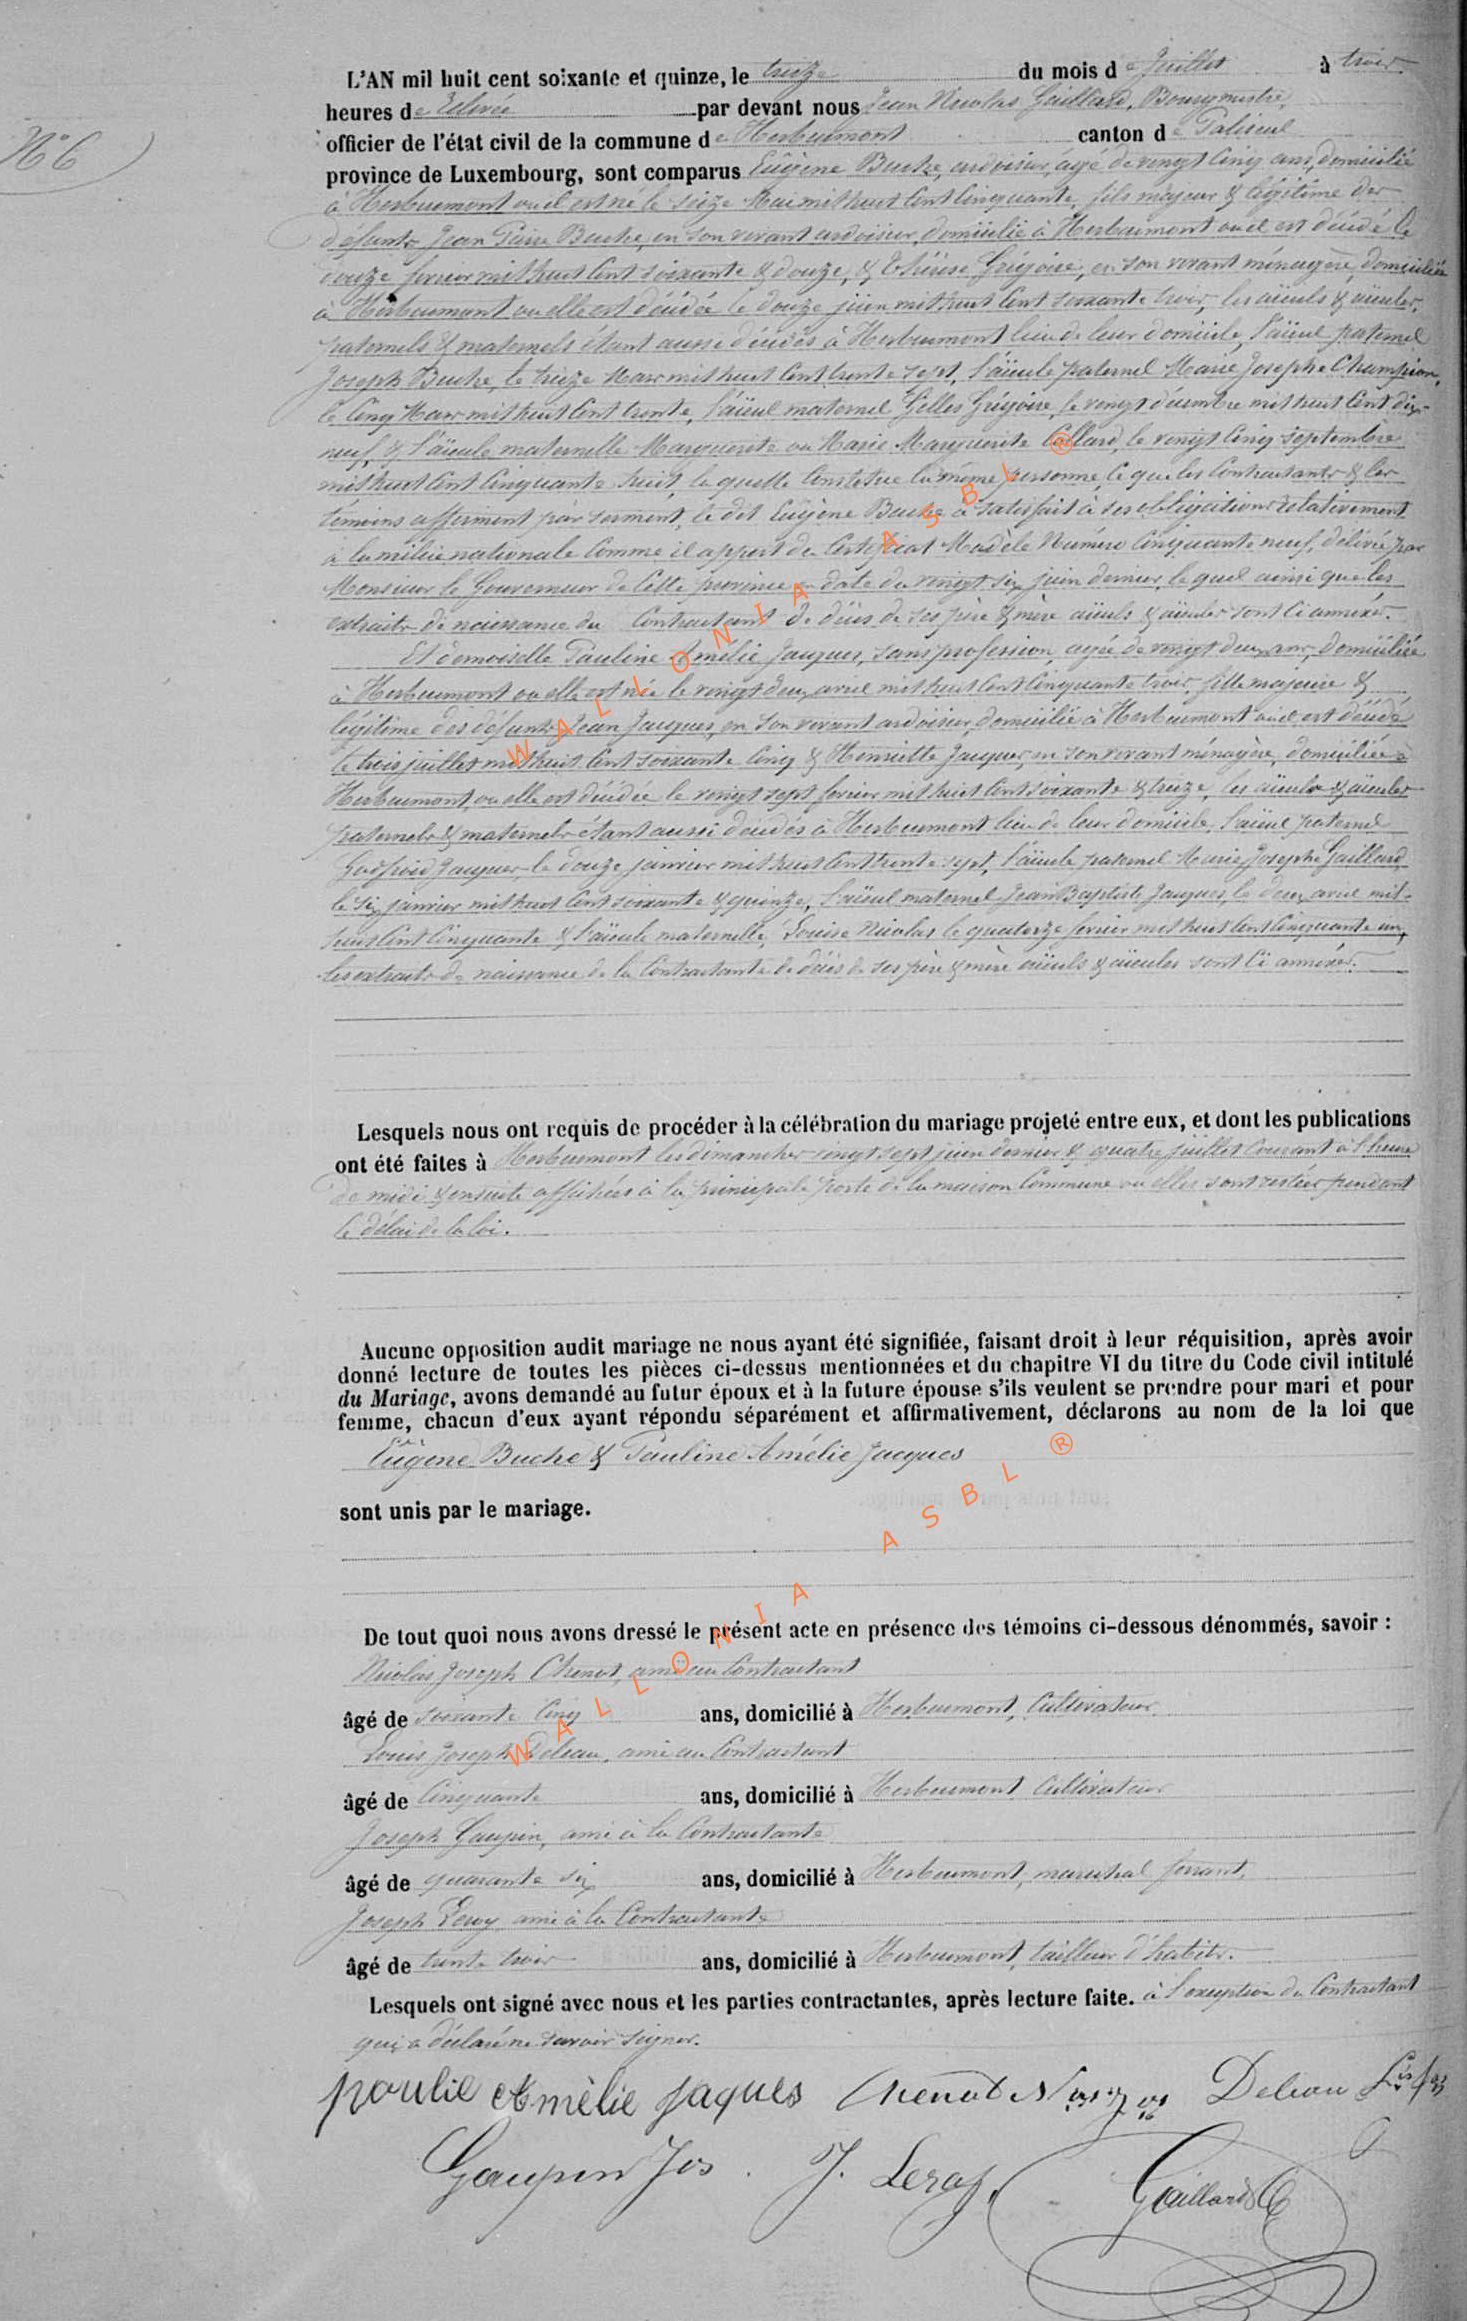 L'AN mil huit cent soixante et quinze, le treize du mois de Juillet à trois
heures de relevée par devant nous Jean Nicolas Gaillard, Bourgmestre,
N° 6
officier de l'état civil de la commune de Herbeumont canton de Paliseul
province de Luxembourg, sont comparus Eugène Buche, ardoisier, agé de vingt cinq ans, domicilié
à Herbeumont ou il est né le seize Mai mil huit cent cinquante, fils majeur & légitime des
défunts Jean Pierre Buche, en son vivant ardoisier, domicilié à Herbeumont ou il est décédé le
douze fevrier mil huit cent soixante & douze, & Thérèse Grégoire, en son vivant ménagère, domiciliée
à Herbeumont ou elle est décédée le douze juin mil huit cent soixante trois, les aïeuls & aïeules,
paternels & maternels étant aussi décédés à Herbeumont lieu de leur domicile, l'aïeul paternel
Joseph Buche, le treize Mars mil huit cent trente sept, l'aïeule paternel Marie Josephe Champion,
le cinq Mars mil huit cent trente, l'aïeul maternel Gilles Grégoire, le vingt décembre mil huit cent dix-
neuf, & l'aïeule maternelle Marguerite ou Marie Marguerite Collard, le vingt cinq septembre
mil huit cent cinquante huit, la quelle constitue la même personne ce que les contractants & les
témoins afferment par serment, le dit Eugène Buche a satisfait à ses obligations relativement
à la milice nationale comme il appert du certificat Modèle Numéro cinquante neuf, délivré par
Monsieur le Gouverneur de cette province en date du vingt six juin dernier, le quel ainsi que les
extraits de naissance du contractant de décès de ses père & mère aïeuls & aïeules sont ci annexés.
Et demoiselle Pauline Amélie Jacques, sans profession, agée de vingt deux ans, domiciliée
à Herbeumont ou elle est née le vingt deux avril mil huit cent cinquante trois, fille majeure &
légitime des défunts Jean Jacques, en son vivant ardoisier, domicilié à Herbeumont ou il est décédé
le trois juillet mil huit cent soixante cinq & Henriette Jacques, en son vivant ménagère, domiciliée à
Herbeumont ou elle est décédée le vingt sept fevrier mil huit cent soixante & treize, les aïeuls & aïeules
paternels & maternels étant aussi décédés à Herbeumont lieu de leur domicile, l'aïeul paternel
Godfroid Jacques le douze janvier mil huit cent trente sept, l'aïeule paternel Marie Josephe Gaillard,
le six janvier mil huit cent soixante & quinze, l'aïeul maternel Jean Baptiste Jacques, le deux avril mil-
huit cent cinquante & l'aïeule maternelle, Louise Nicolas le quatorze fevrier mil huit cent cinquante un,
les extraits de naissance de la contractante de décès de ses père & mère aïeuls & aïeules sont ci annexés.
Lesquels nous ont requis de procéder à la célébration du mariage projeté entre eux, et dont les publications
ont été faites à Herbeumont les dimanches vingt sept juin dernier & quatre juillet courant à l'heure
de midi & ensuite affichées à la principale porte de la maison commune ou elles sont restées pendant
le délai de la loi.
Aucune opposition audit mariage ne nous ayant été signifiée, faisant droit à leur réquisition, après avoir
donné lecture de toutes les pièces ci-dessus mentionnées et du chapitre VI du titre du Code civil intitulé
du Mariage, avons demandé au futur époux et à la future épouse s'ils veulent se prendre pour mari et pour
femme, chacun d'eux ayant répondu séparément et affirmativement, déclarons au nom de la loi que
Eugène Buche & Pauline Amélie Jacques
sont unis par le mariage.
De tout quoi nous avons dressé le présent acte en présence des témoins ci-dessous dénommés, savoir :
Nicolas Joseph Chenot, ami au contractant
âgé de soixante cinq ans, domicilié à Herbeumont, cultivateur
Louis Joseph Deleau, ami au contractant
âgé de cinquante ans, domicilié à Herbeumont cultivateur
Joseph Gaupin, ami à la contractante
âgé de quarante six ans, domicilié à Herbeumont, maréchal ferrant,
Joseph Leroy ami à la contractante
âgé de trente trois ans, domicilié à Herbeumont, tailleur d'habits.
Lesquels ont signé avec nous et les parties contractantes, après lecture faite. à l'exception du contractant
qui a déclaré ne savoir signer.
poulie Amèlie jaques Chenot Deleau
Gaupin Jos. J. Leroy. Gaillard
WALLONIA ASBL ®
WALLONIA ASBL ®